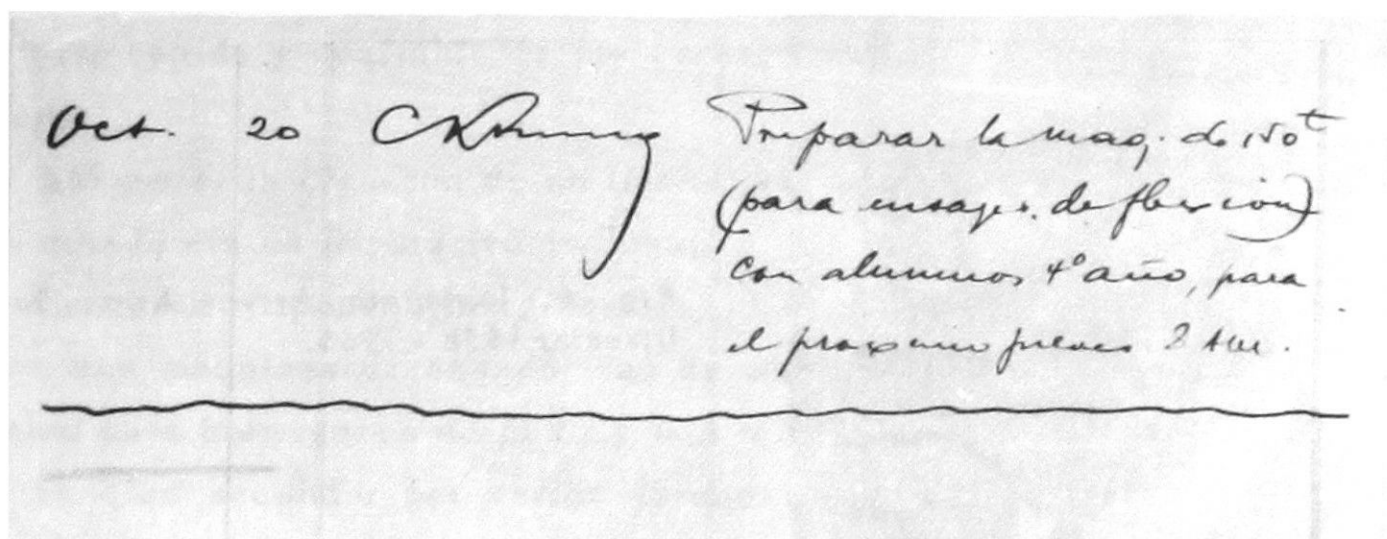 Oct. 20 Preparar la maq. de 150t
(para ensayes. de flexión)
con alumnos 4º año, para
el proximo jueves